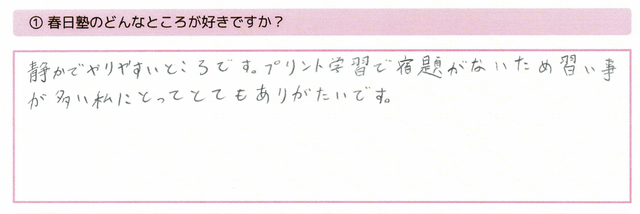 ① 春日塾のどんなところが好きですか？
静かでやりやすいところです。プリント学習で宿題がないため習い事
が多い私にとってとてもありがたいです。